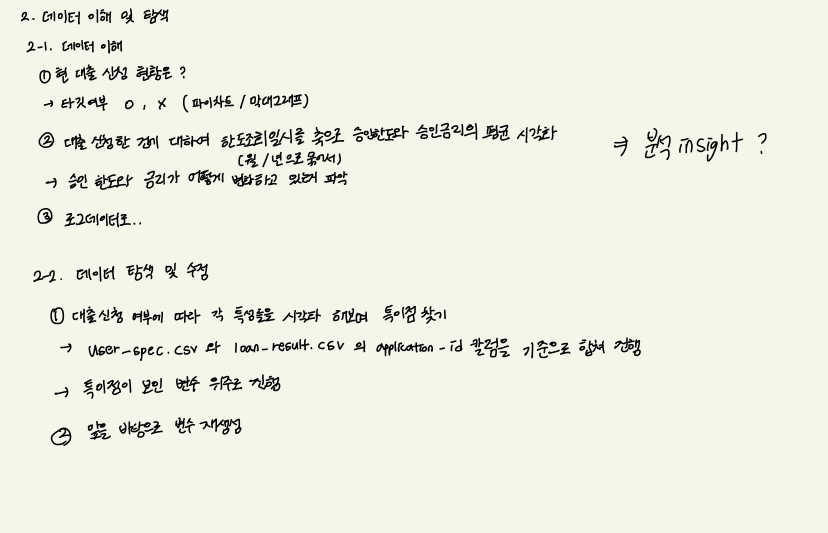 2. 데이터 이해 및 탐색
2-1. 데이터 이해
① 현 대출 신청 현황은?
→ 타깃여부 O, X (파이차트 / 막대그래프)
② 대출 신청한 건에 대하여 한도조회일시를 축으로 승인한도와 승인금리의 평균 시각화
(월/년으로 묶어서)
⇒ 분석 insight ?
→ 승인 한도와 금리가 어떻게 변화하고 있는지 파악
③ 로그데이터로..
2-2. 데이터 탐색 및 수정
① 대출신청 여부에 따라 각 특성들을 시각화 해보며 특이점 찾기
→ user-spec.csv 와 loan-result.csv 의 application-id 칼럼을 기준으로 합쳐 진행
→ 특이점이 보인 변수 위주로 진행
② 앞을 바탕으로 변수 재생성